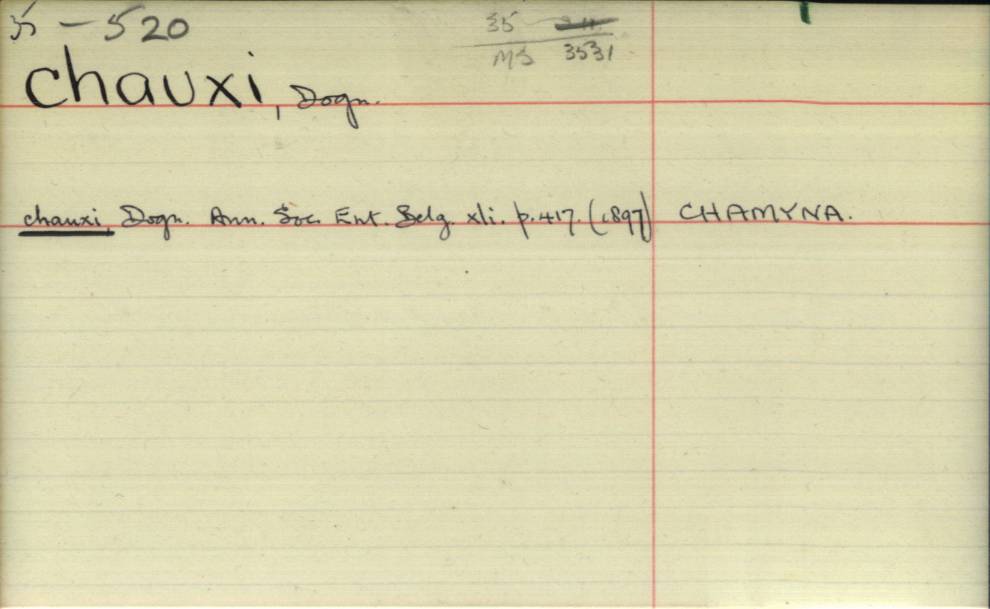 35 - 520
35
MS 3531
chauxi, Dogn.
chauxi, Dogn. Ann. Soc. Ent. Belg. xli. p. 417. (1897) CHAMYNA.